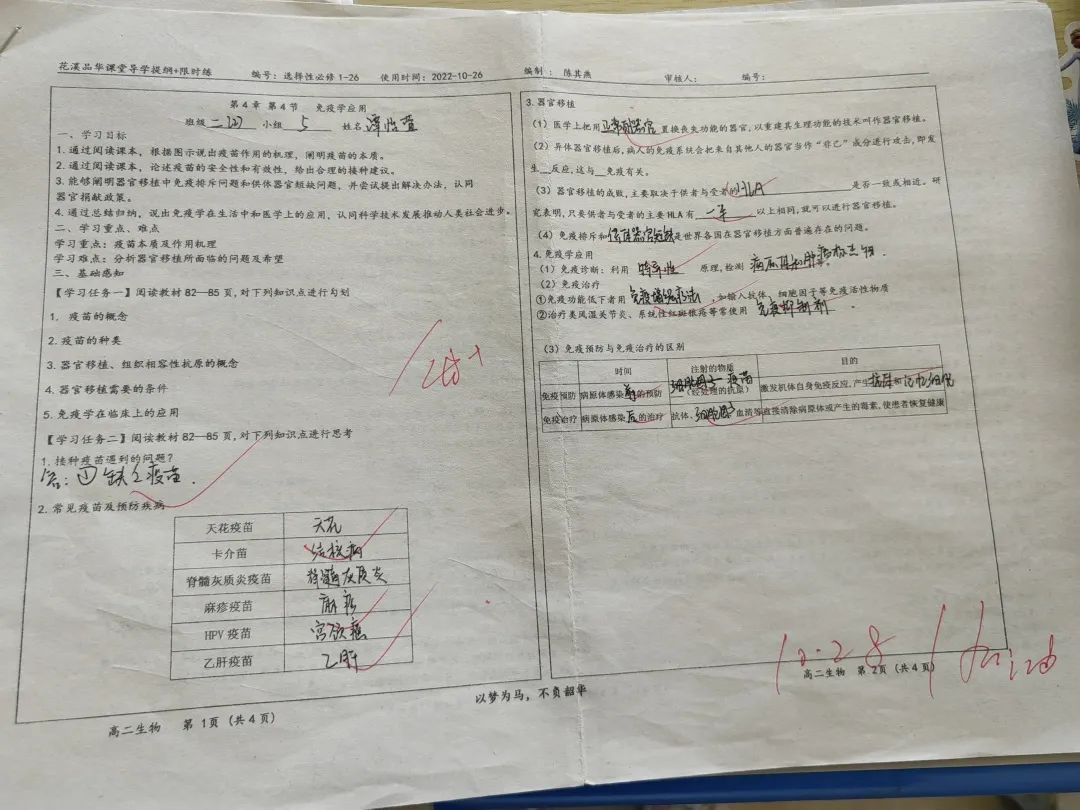 花溪品华课堂导学提纲+限时练 编号：选择性必修1-26 使用时间：2022-10-26 编制：陈其燕 审核人： 编号：
第4章 第4节 免疫学应用
班级 二(2) 小组 5 姓名
一、学习目标
1.通过阅读课本，根据图示说出疫苗作用的机理，阐明疫苗的本质。
2.通过阅读课本，论述疫苗的安全性和有效性，给出合理的接种建议。
3.能够阐明器官移植中免疫排斥问题和供体器官短缺问题，并尝试提出解决办法，认同
器官捐献政策。
4.通过总结归纳，说出免疫学在生活中和医学上的应用，认同科学技术发展推动人类社会进步。
二、学习重点、难点
学习重点：疫苗本质及作用机理
学习难点：分析器官移植所面临的问题及希望
三、基础感知
【学习任务一】阅读教材82—85页，对下列知识点进行勾划
1. 疫苗的概念
2.疫苗的种类
3.器官移植、组织相容性抗原的概念
4.器官移植需要的条件
5.免疫学在临床上的应用
【学习任务二】阅读教材82—85页，对下列知识点进行思考
1.接种疫苗遇到的问题？
答：① 缺乏疫苗.
2.常见疫苗及预防疾病
天花疫苗 天花
卡介苗 结核病
脊髓灰质炎疫苗 脊髓灰质炎
麻疹疫苗 麻疹
HPV疫苗 宫颈癌
乙肝疫苗 乙肝
高二生物 第1页（共4页）
以梦为马，不负韶华
3.器官移植
（1）医学上把用正常的器官置换丧失功能的器官，以重建其生理功能的技术叫作器官移植。
（2）异体器官移植后，病人的免疫系统会把来自其他人的器官当作“非己”成分进行攻击，即发
生__反应，这与__免疫有关。
（3）器官移植的成败，主要取决于供者与受者的HLA 是否一致或相近。研
究表明，只要供者与受者的主要HLA有 一半 以上相同，就可以进行器官移植。
（4）免疫排斥和供体器官短缺是世界各国在器官移植方面普遍存在的问题。
4.免疫学应用
（1）免疫诊断：利用 特异性 原理，检测 病原体和肿瘤标志物.
（2）免疫治疗
①免疫功能低下者用 免疫增强疗法 ，如输入抗体、细胞因子等免疫活性物质
②治疗类风湿关节炎、系统性红斑狼疮等常使用 免疫抑制剂 .
（3）免疫预防与免疫治疗的区别
时间 注射的物质 目的
免疫预防 病原体感染前的预防 疫苗（经处理的抗原） 激发机体自身免疫反应，产生抗体和记忆细胞
免疫治疗 病原体感染后的治疗 抗体、细胞因子、血清等 直接清除病原体或产生的毒素，使患者恢复健康
10.28 加油
高二生物 第2页（共4页）